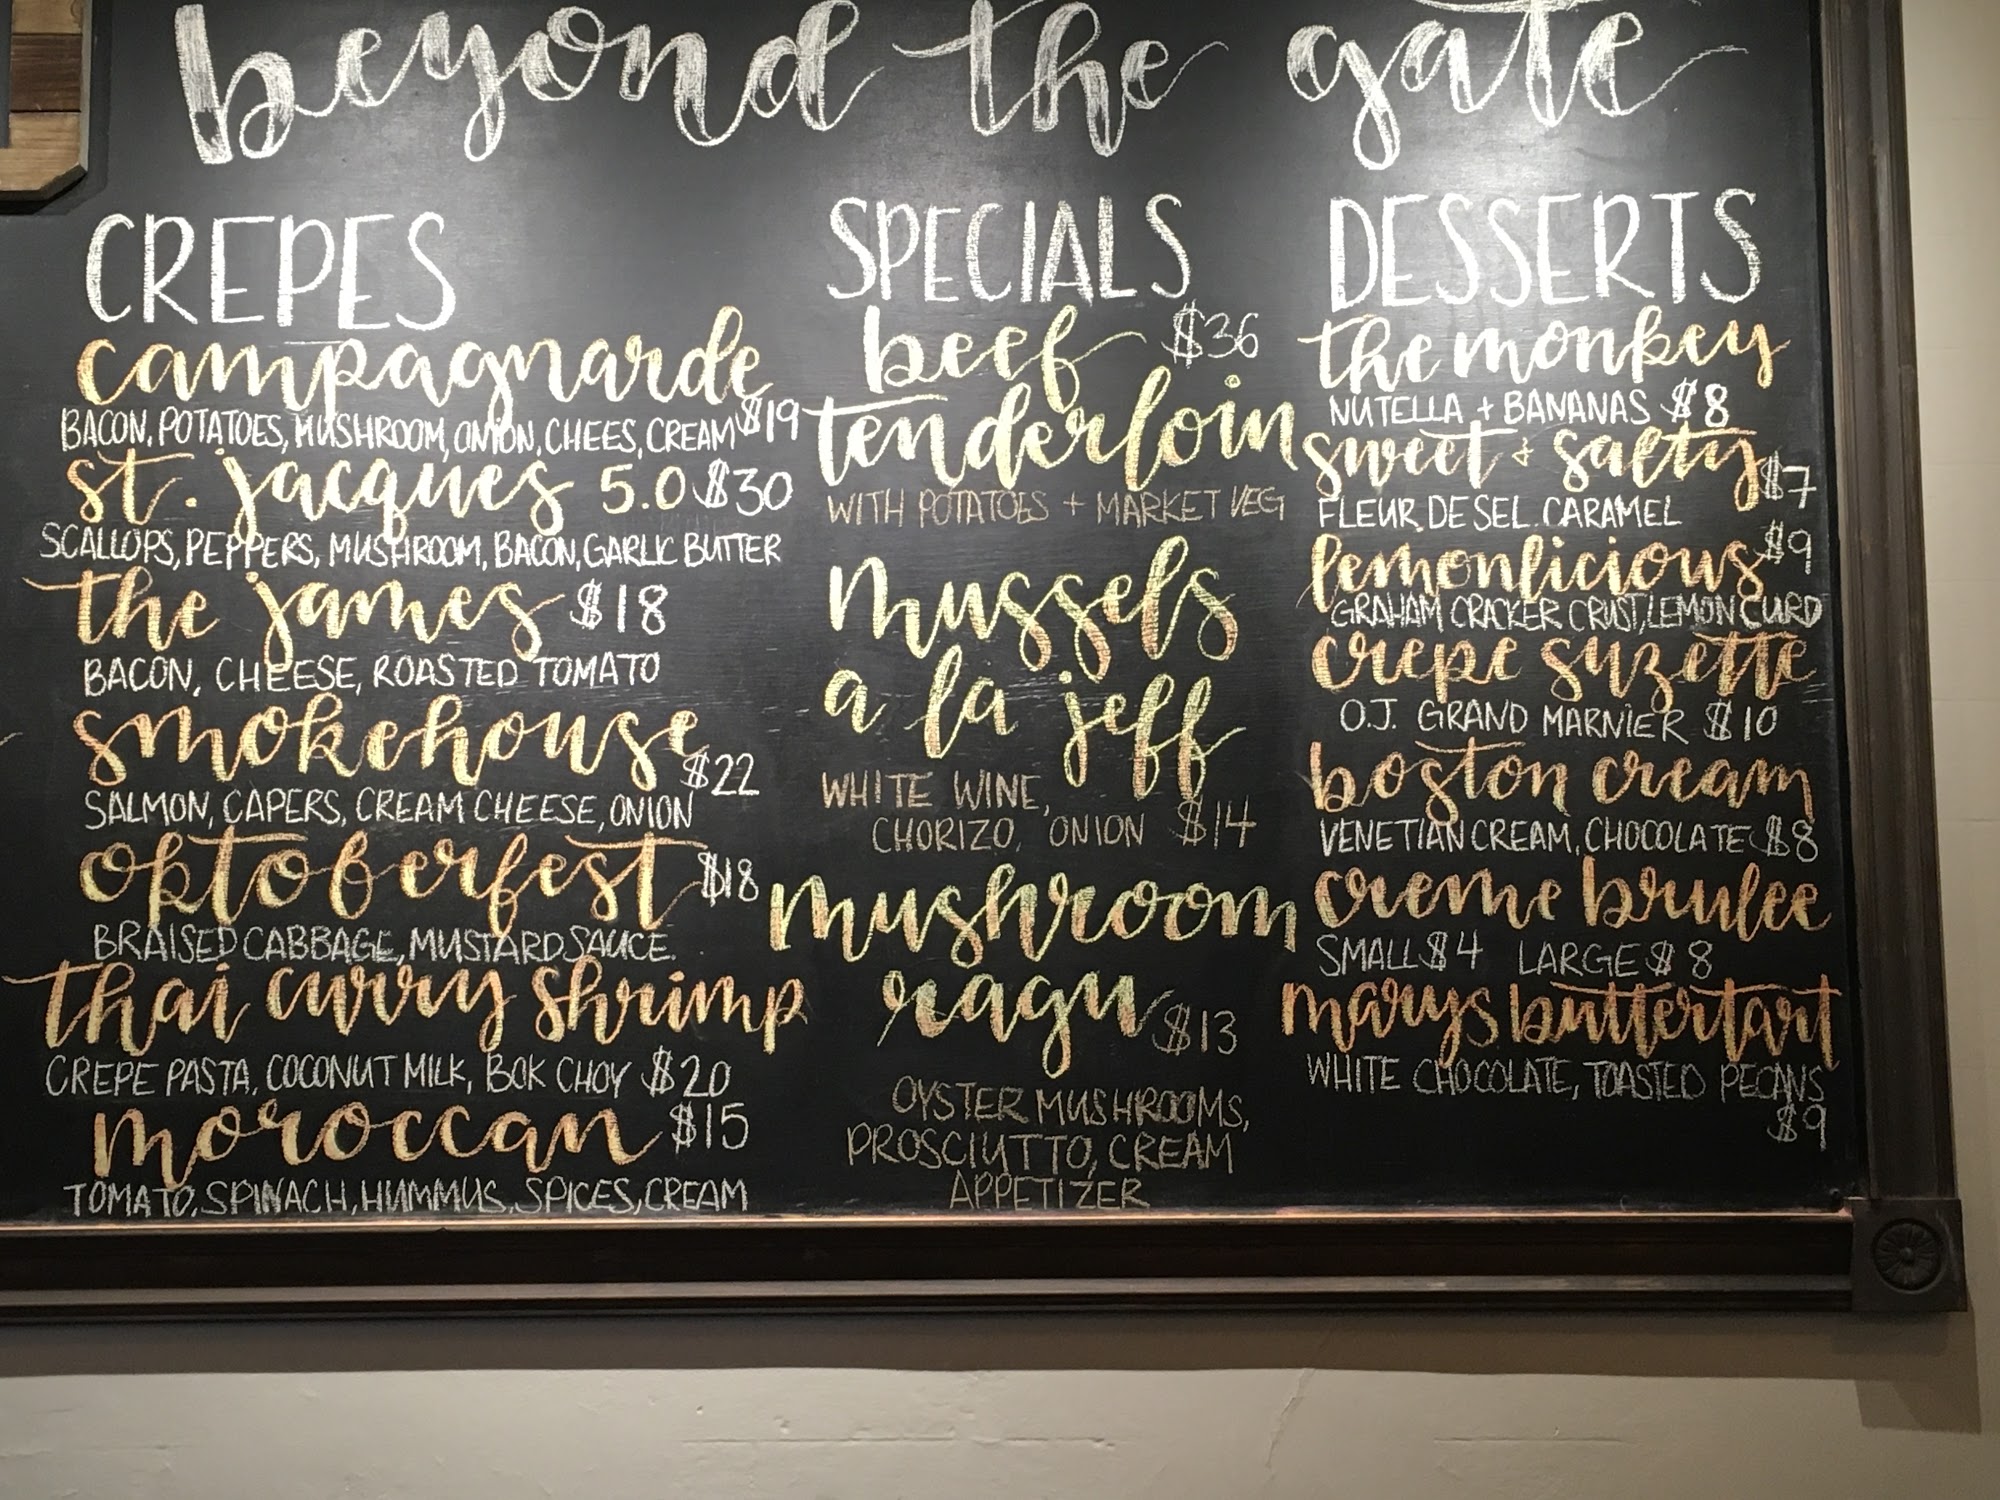 beyond the gate
CREPES
campagnarde
BACON, POTATOES, MUSHROOM, ONION, CHEES, CREAM $19
st. jacques 5.0 $30
SCALLOPS, PEPPERS, MUSHROOM, BACON, GARLIC BUTTER
the james $18
BACON, CHEESE, ROASTED TOMATO
smokehouse
$22
SALMON, CAPERS, CREAM CHEESE, ONION
oktoberfest $18
BRAISED CABBAGE, MUSTARD SAUCE.
thai curry shrimp
CREPE PASTA, COCONUT MILK, BOK CHOY $20
moroccan $15
TOMATO, SPINACH, HUMMUS, SPICES, CREAM
SPECIALS
beef $36
tenderloin
WITH POTATOES + MARKET VEG
mussels
a la jeff
WHITE WINE,
CHORIZO, ONION $14
mushroom
ragu $13
OYSTER MUSHROOMS,
PROSCIUTTO, CREAM
APPETIZER
DESSERTS
the monkey
NUTELLA + BANANAS $8
sweet + salty $7
FLEUR DE SEL CARAMEL
lemonlicious $9
GRAHAM CRACKER CRUST, LEMON CURD
crepe suzette
O.J. GRAND MARNIER $10
boston cream
VENETIAN CREAM, CHOCOLATE $8
creme brulee
SMALL $4 LARGE $8
marys buttertart
WHITE CHOCOLATE, TOASTED PECANS
$9